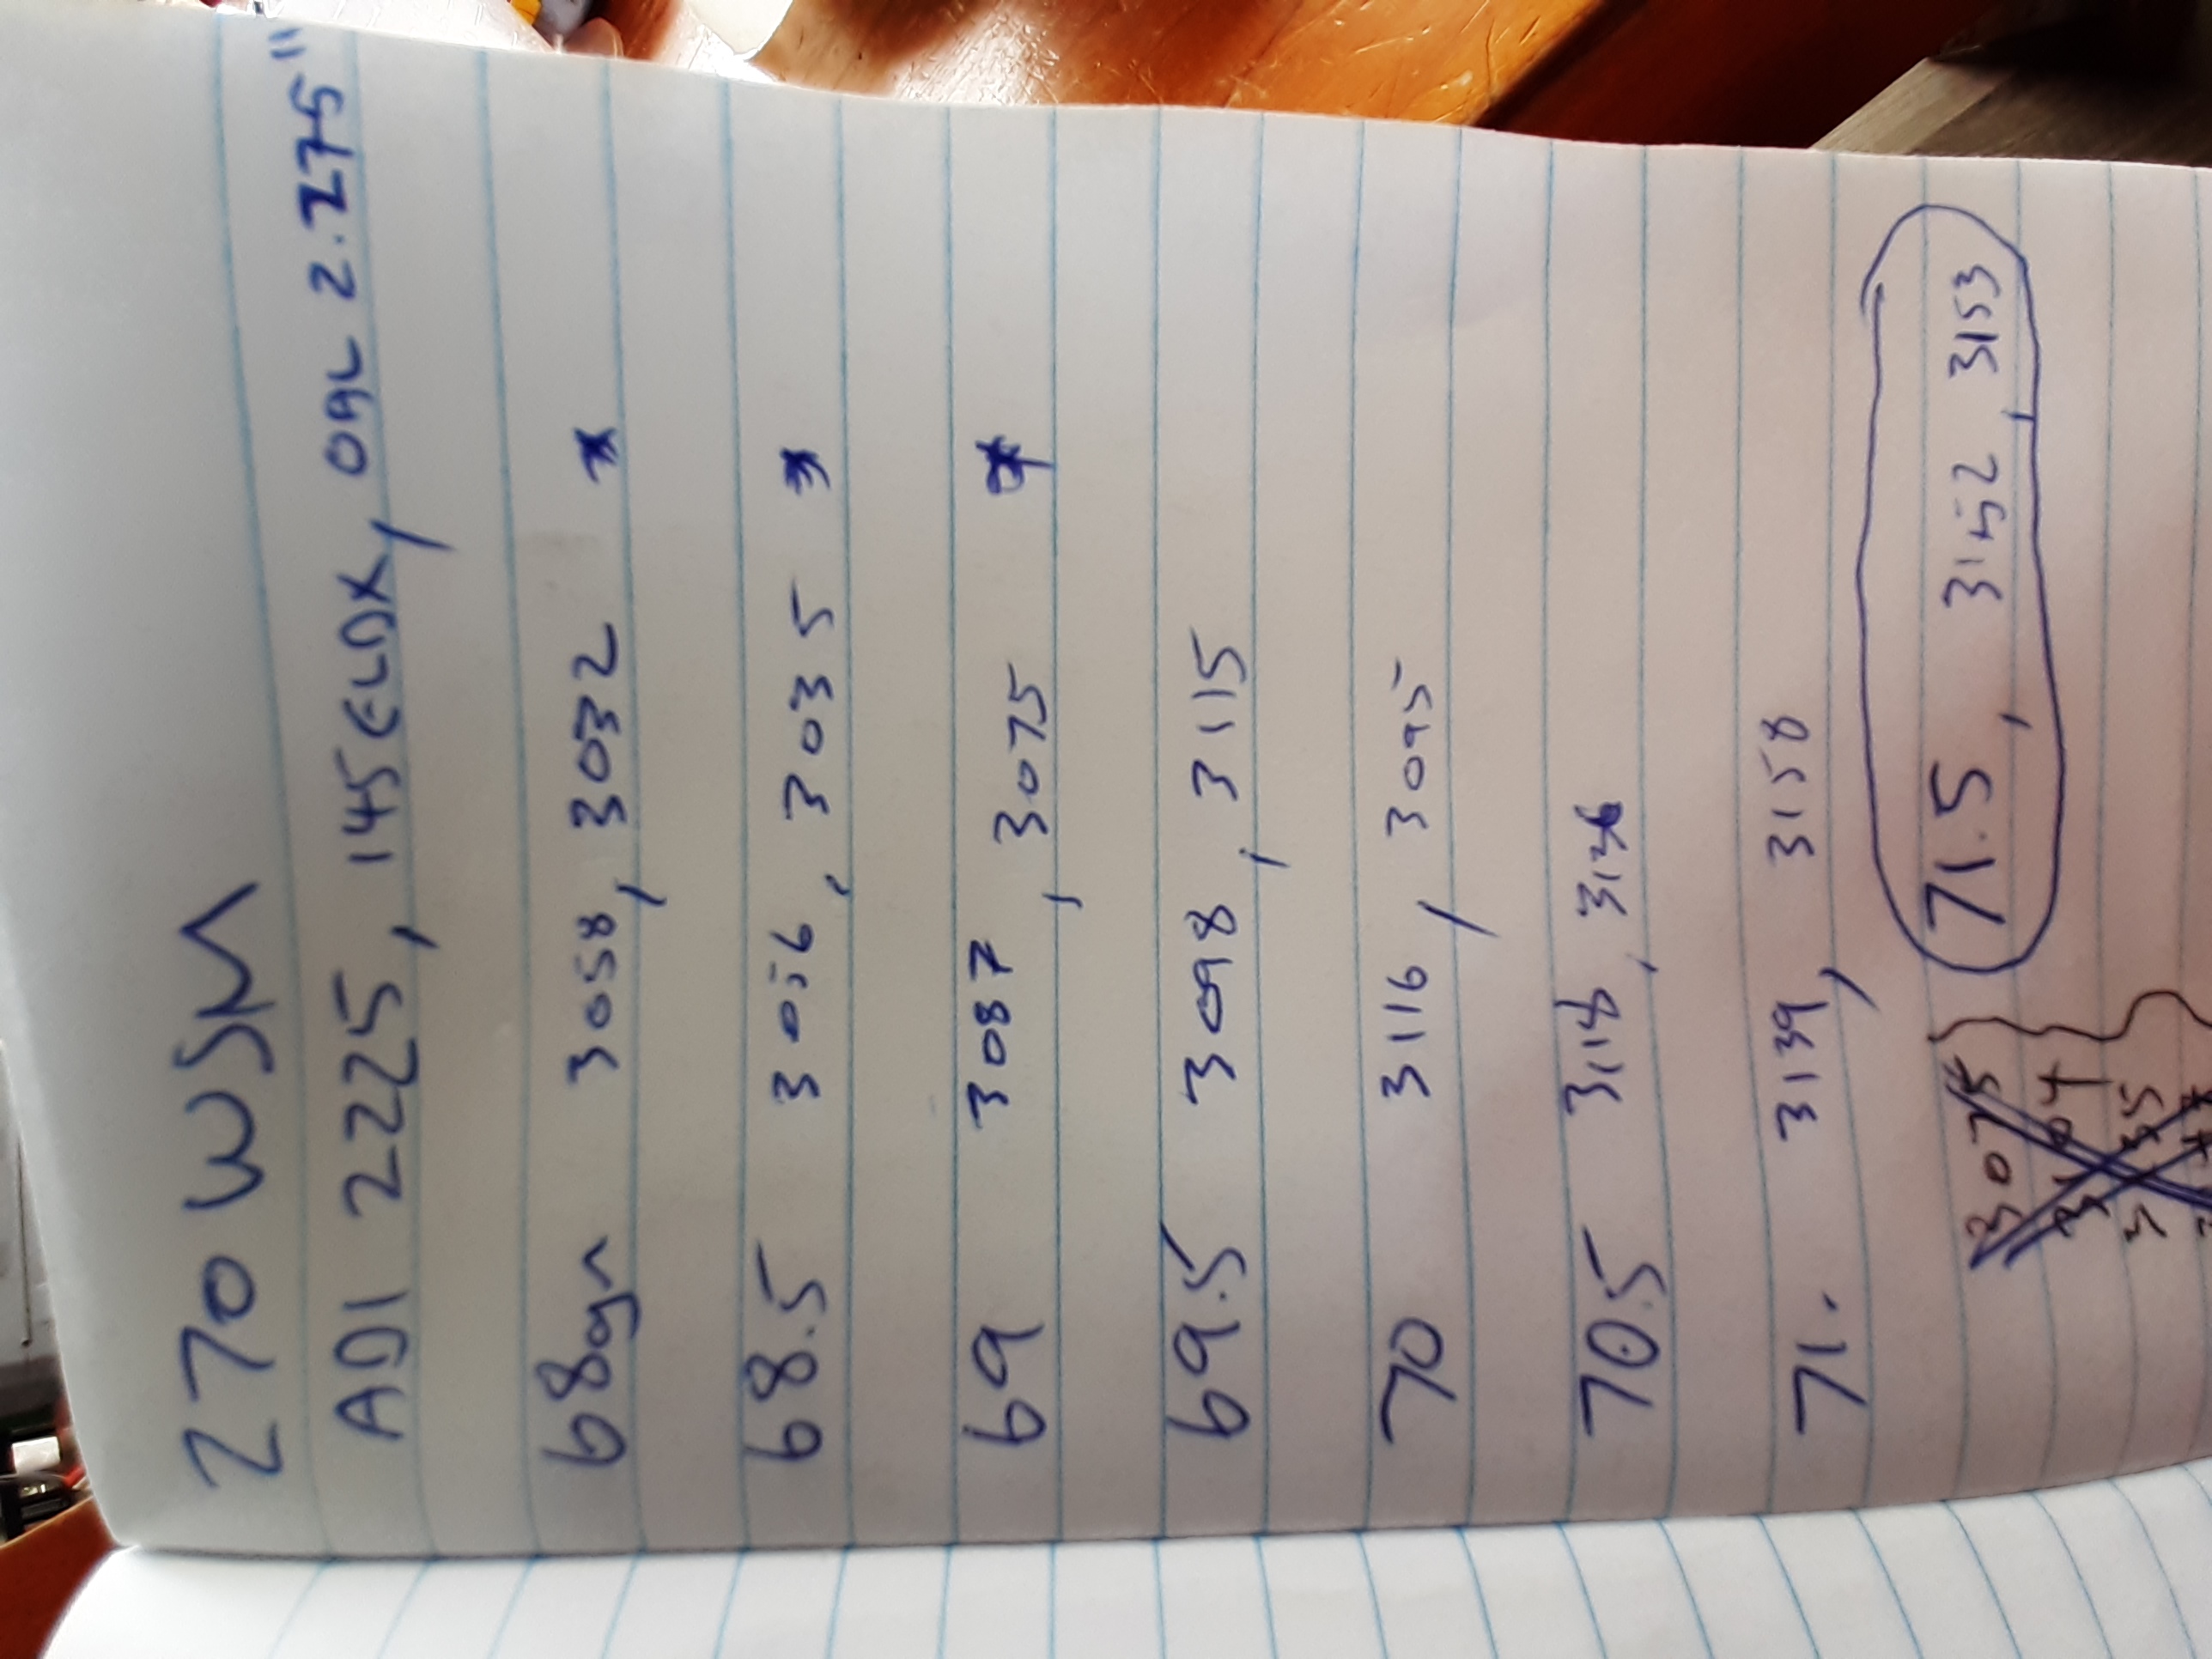 270 WSM
ADI 2225, 145 ELDX, OAL 2.275"
68gn 3058, 3032 *
68.5 3056, 3035 *
69 3087, 3075 *
69.5 3098, 3115
70 3116, 3095
70.5 3118, 3136
71. 3139, 3158
71.5, 3152, 3153
3075
3104
3135